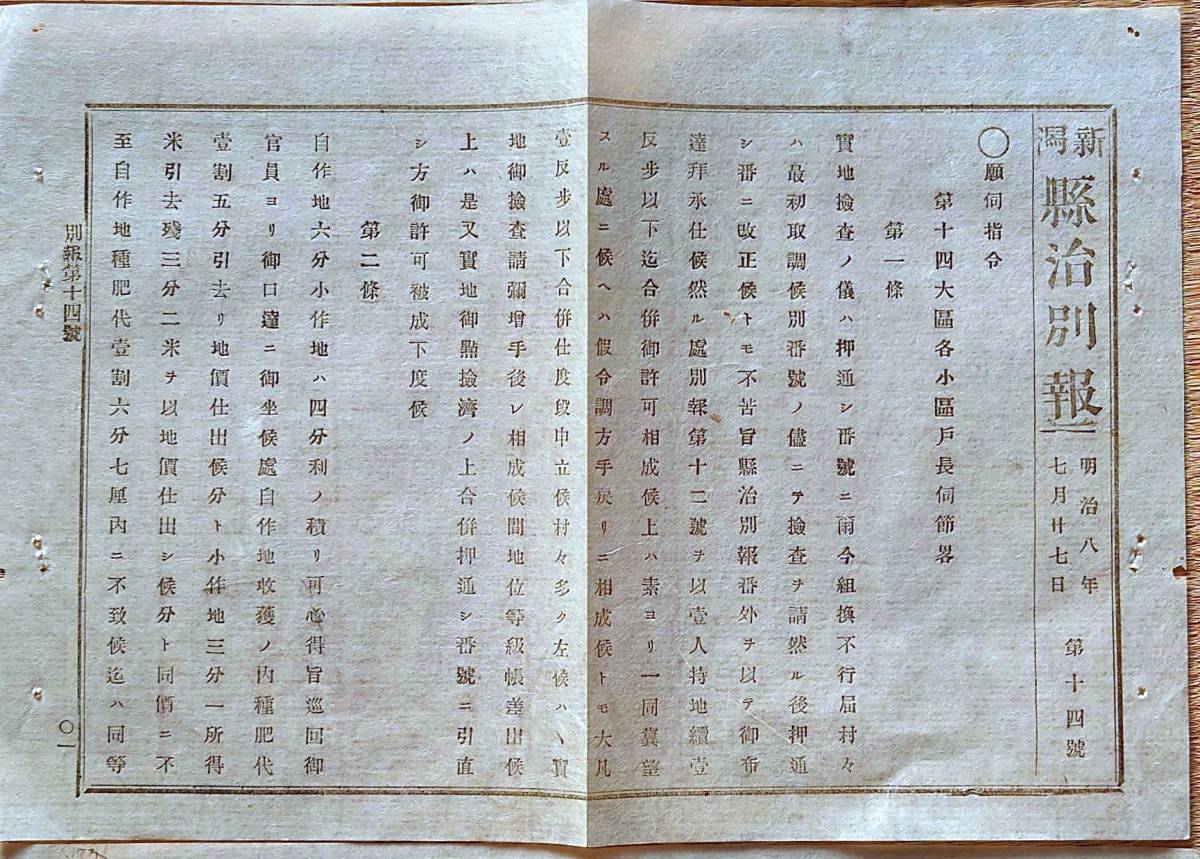 新潟縣治別報
明治八年
七月廿七日
第十四號
〇願伺指令
第十四大區各小區戸長伺節畧
第一條
實地撿査ノ儀ハ押通シ番號ニ爾今組換不行屆村々
ハ最初取調候別番號ノ儘ニテ撿査ヲ請然ル後押通
シ番ニ改正候トモ不苦旨縣治別報番外ヲ以テ御布
達拜承仕候然ル處別報第十二號ヲ以壹人持地續壹
反步以下迄合併御許可相成候上ハ素ヨリ一同冀望
スル處ニ候ヘハ假令調方手戻リニ相成候トモ大凡
壹反步以下合併仕度段申立候村々多ク左候ハヽ實
地御撿査請彌增手後レ相成候間地位等級帳差出候
上ハ是又實地御㸃撿濟ノ上合併押通シ番號ニ引直
シ方御許可被成下度候
第二條
自作地六分小作地ハ四分利ノ積リ可心得旨巡回御
官員ヨリ御口達ニ御坐候處自作地收獲ノ內種肥代
壹割五分引去リ地價仕出候分ト小作地三分一所得
米引去殘三分二米ヲ以地價仕出シ候分ト同價ニ不
至自作地種肥代壹割六分七厘內ニ不致候迄ハ同等
別報第十四號
〇一